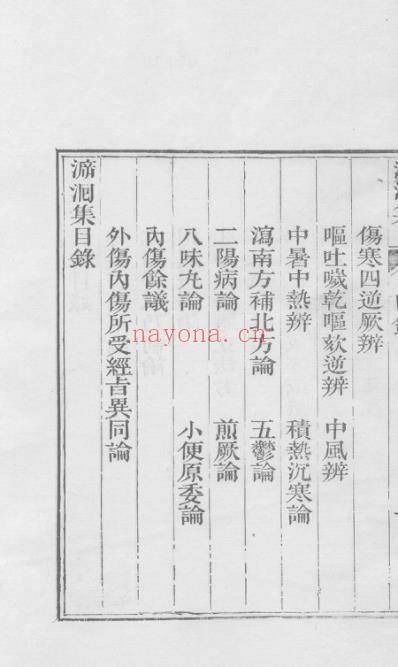 傷寒四逆厥辨
嘔吐噦乾嘔欬逆辨 中風辨
中暑中熱辨 積熱沉寒論
瀉南方補北方論 五鬱論
二陽病論 煎厥論
八味丸論 小便原委論
內傷餘議
外傷內傷所受經旨異同論
泝洄集目錄
nayona.cn